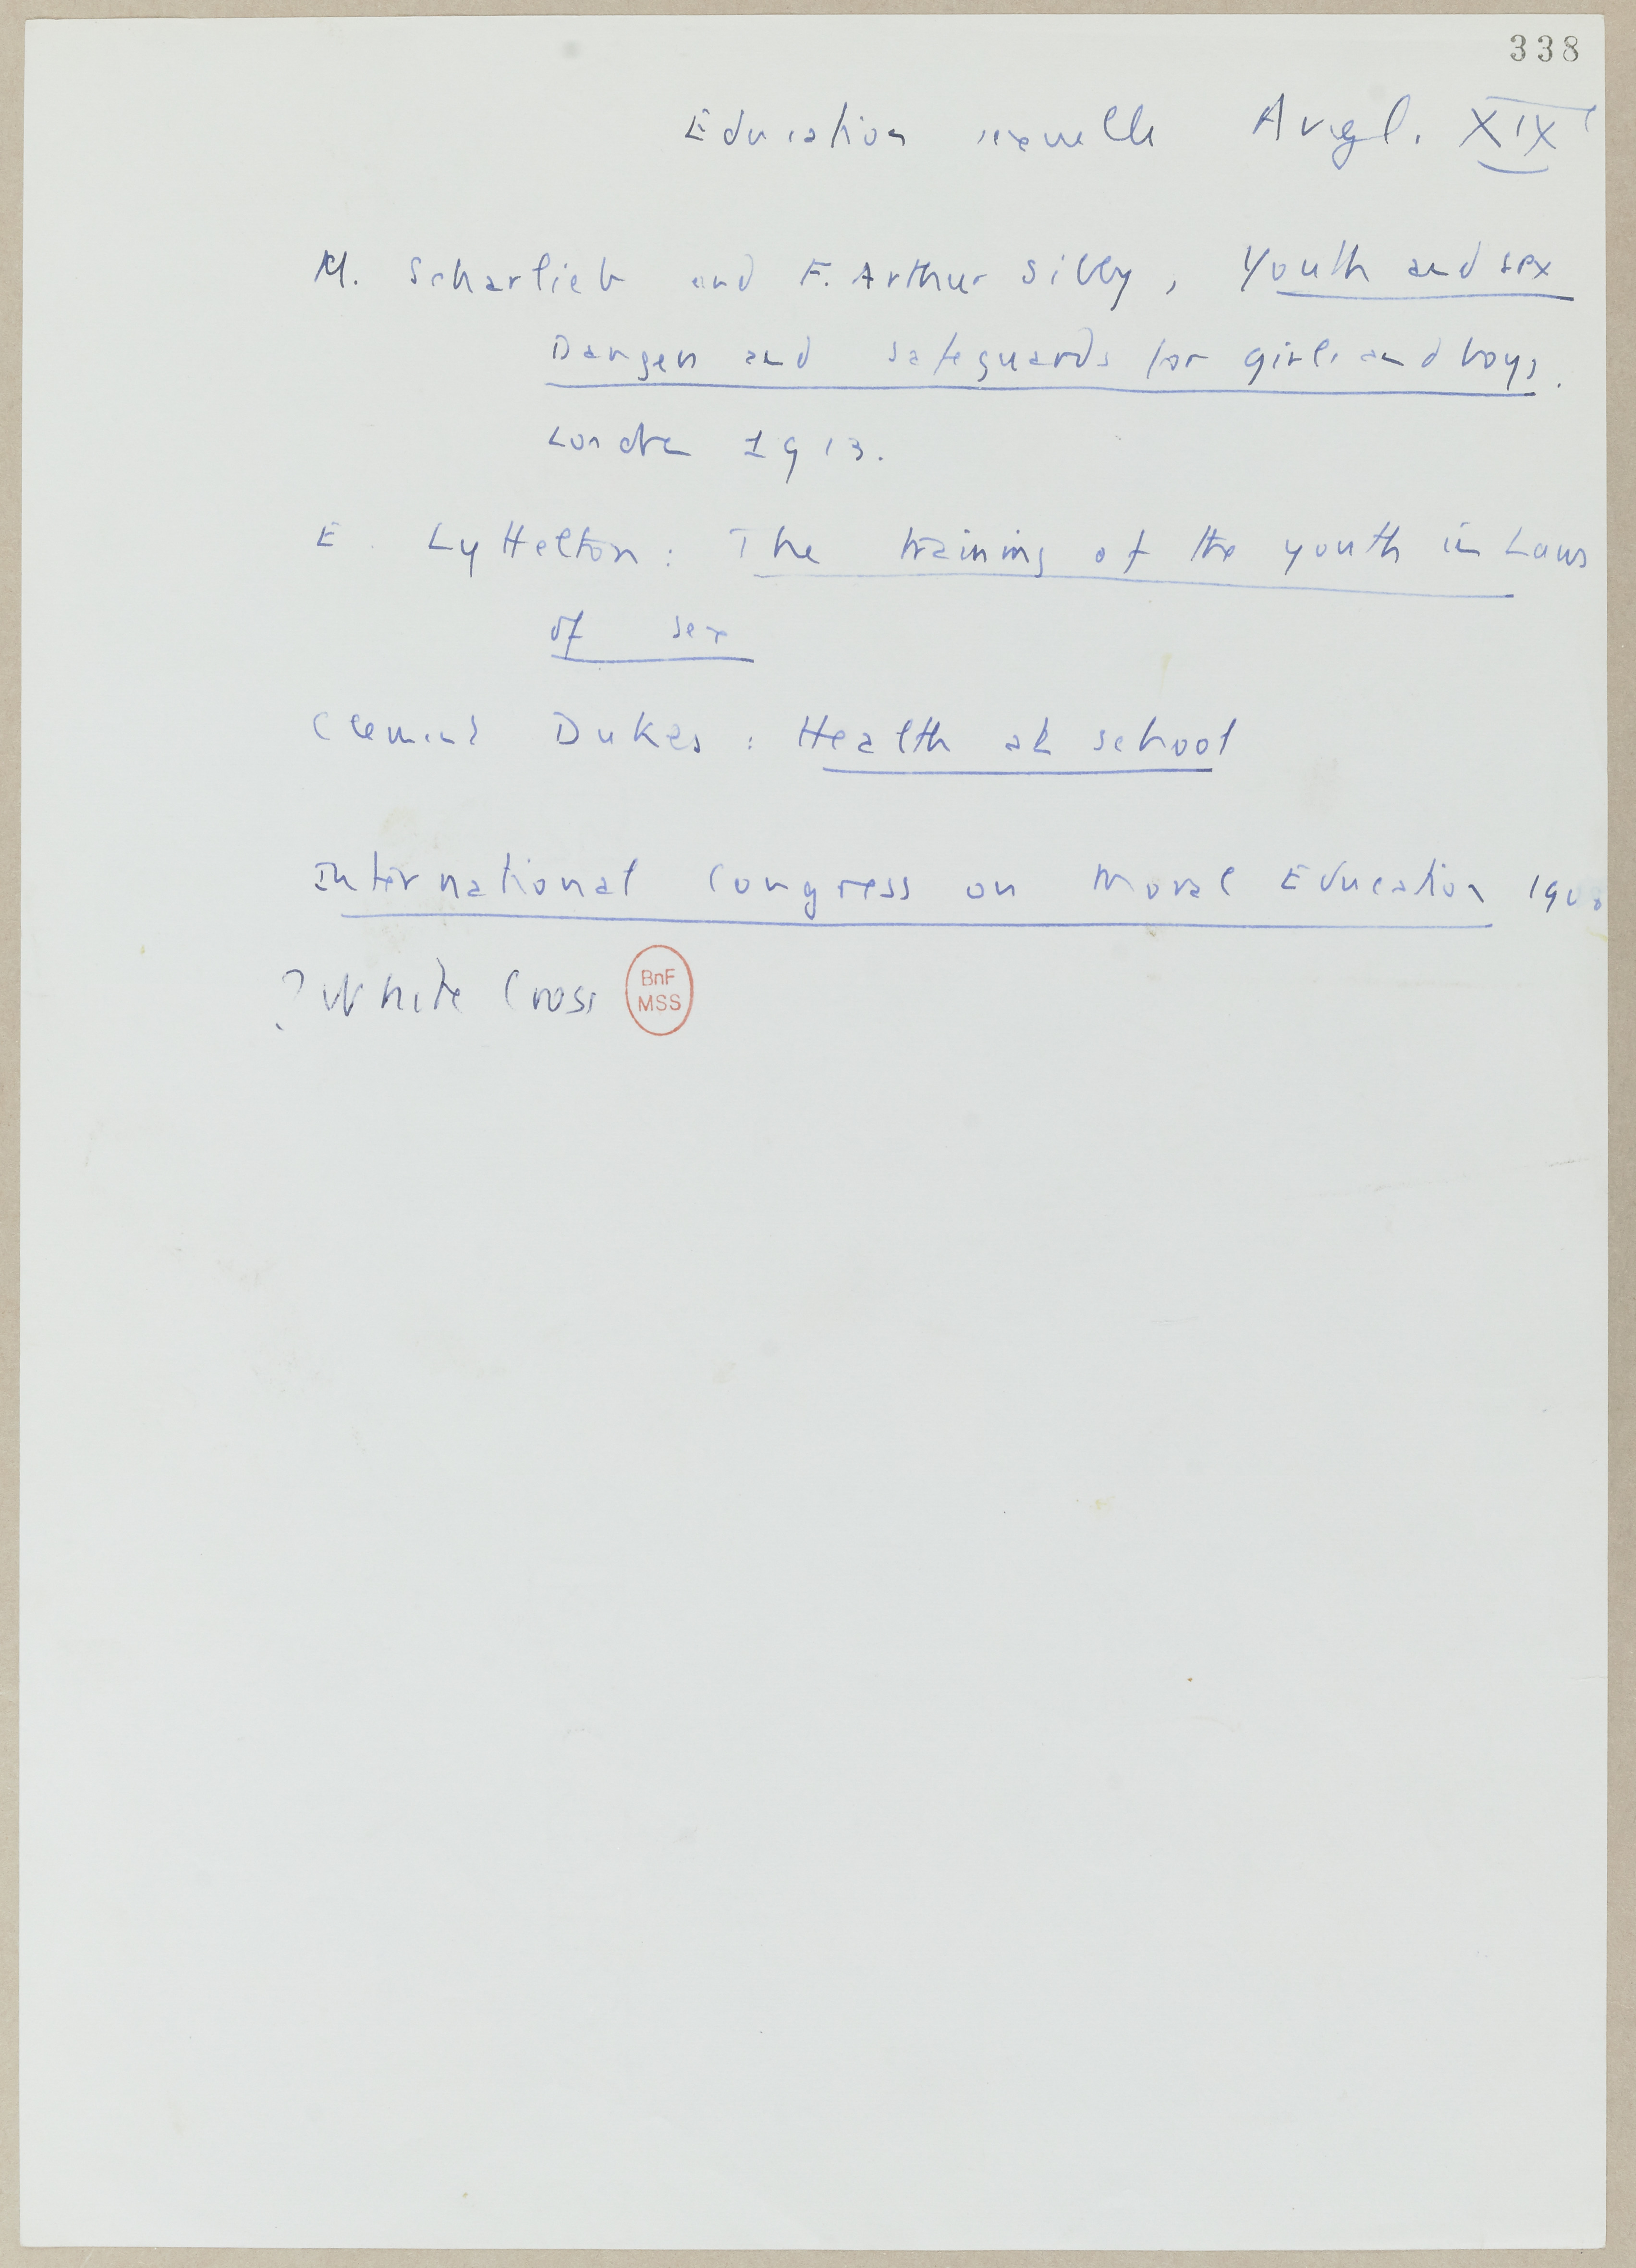 338
Education sexuelle Angl. XIXe
M. Scharlieb and F. Arthur Sibly, Youth and sex
Dangers and safeguards for girls and boys.
Londres 1913.
E. Lyttelton: The training of the youth in Laws
of sex
Clement Dukes: Health at school
International Congress on Moral Education 1908
? White Cross
BnF
MSS